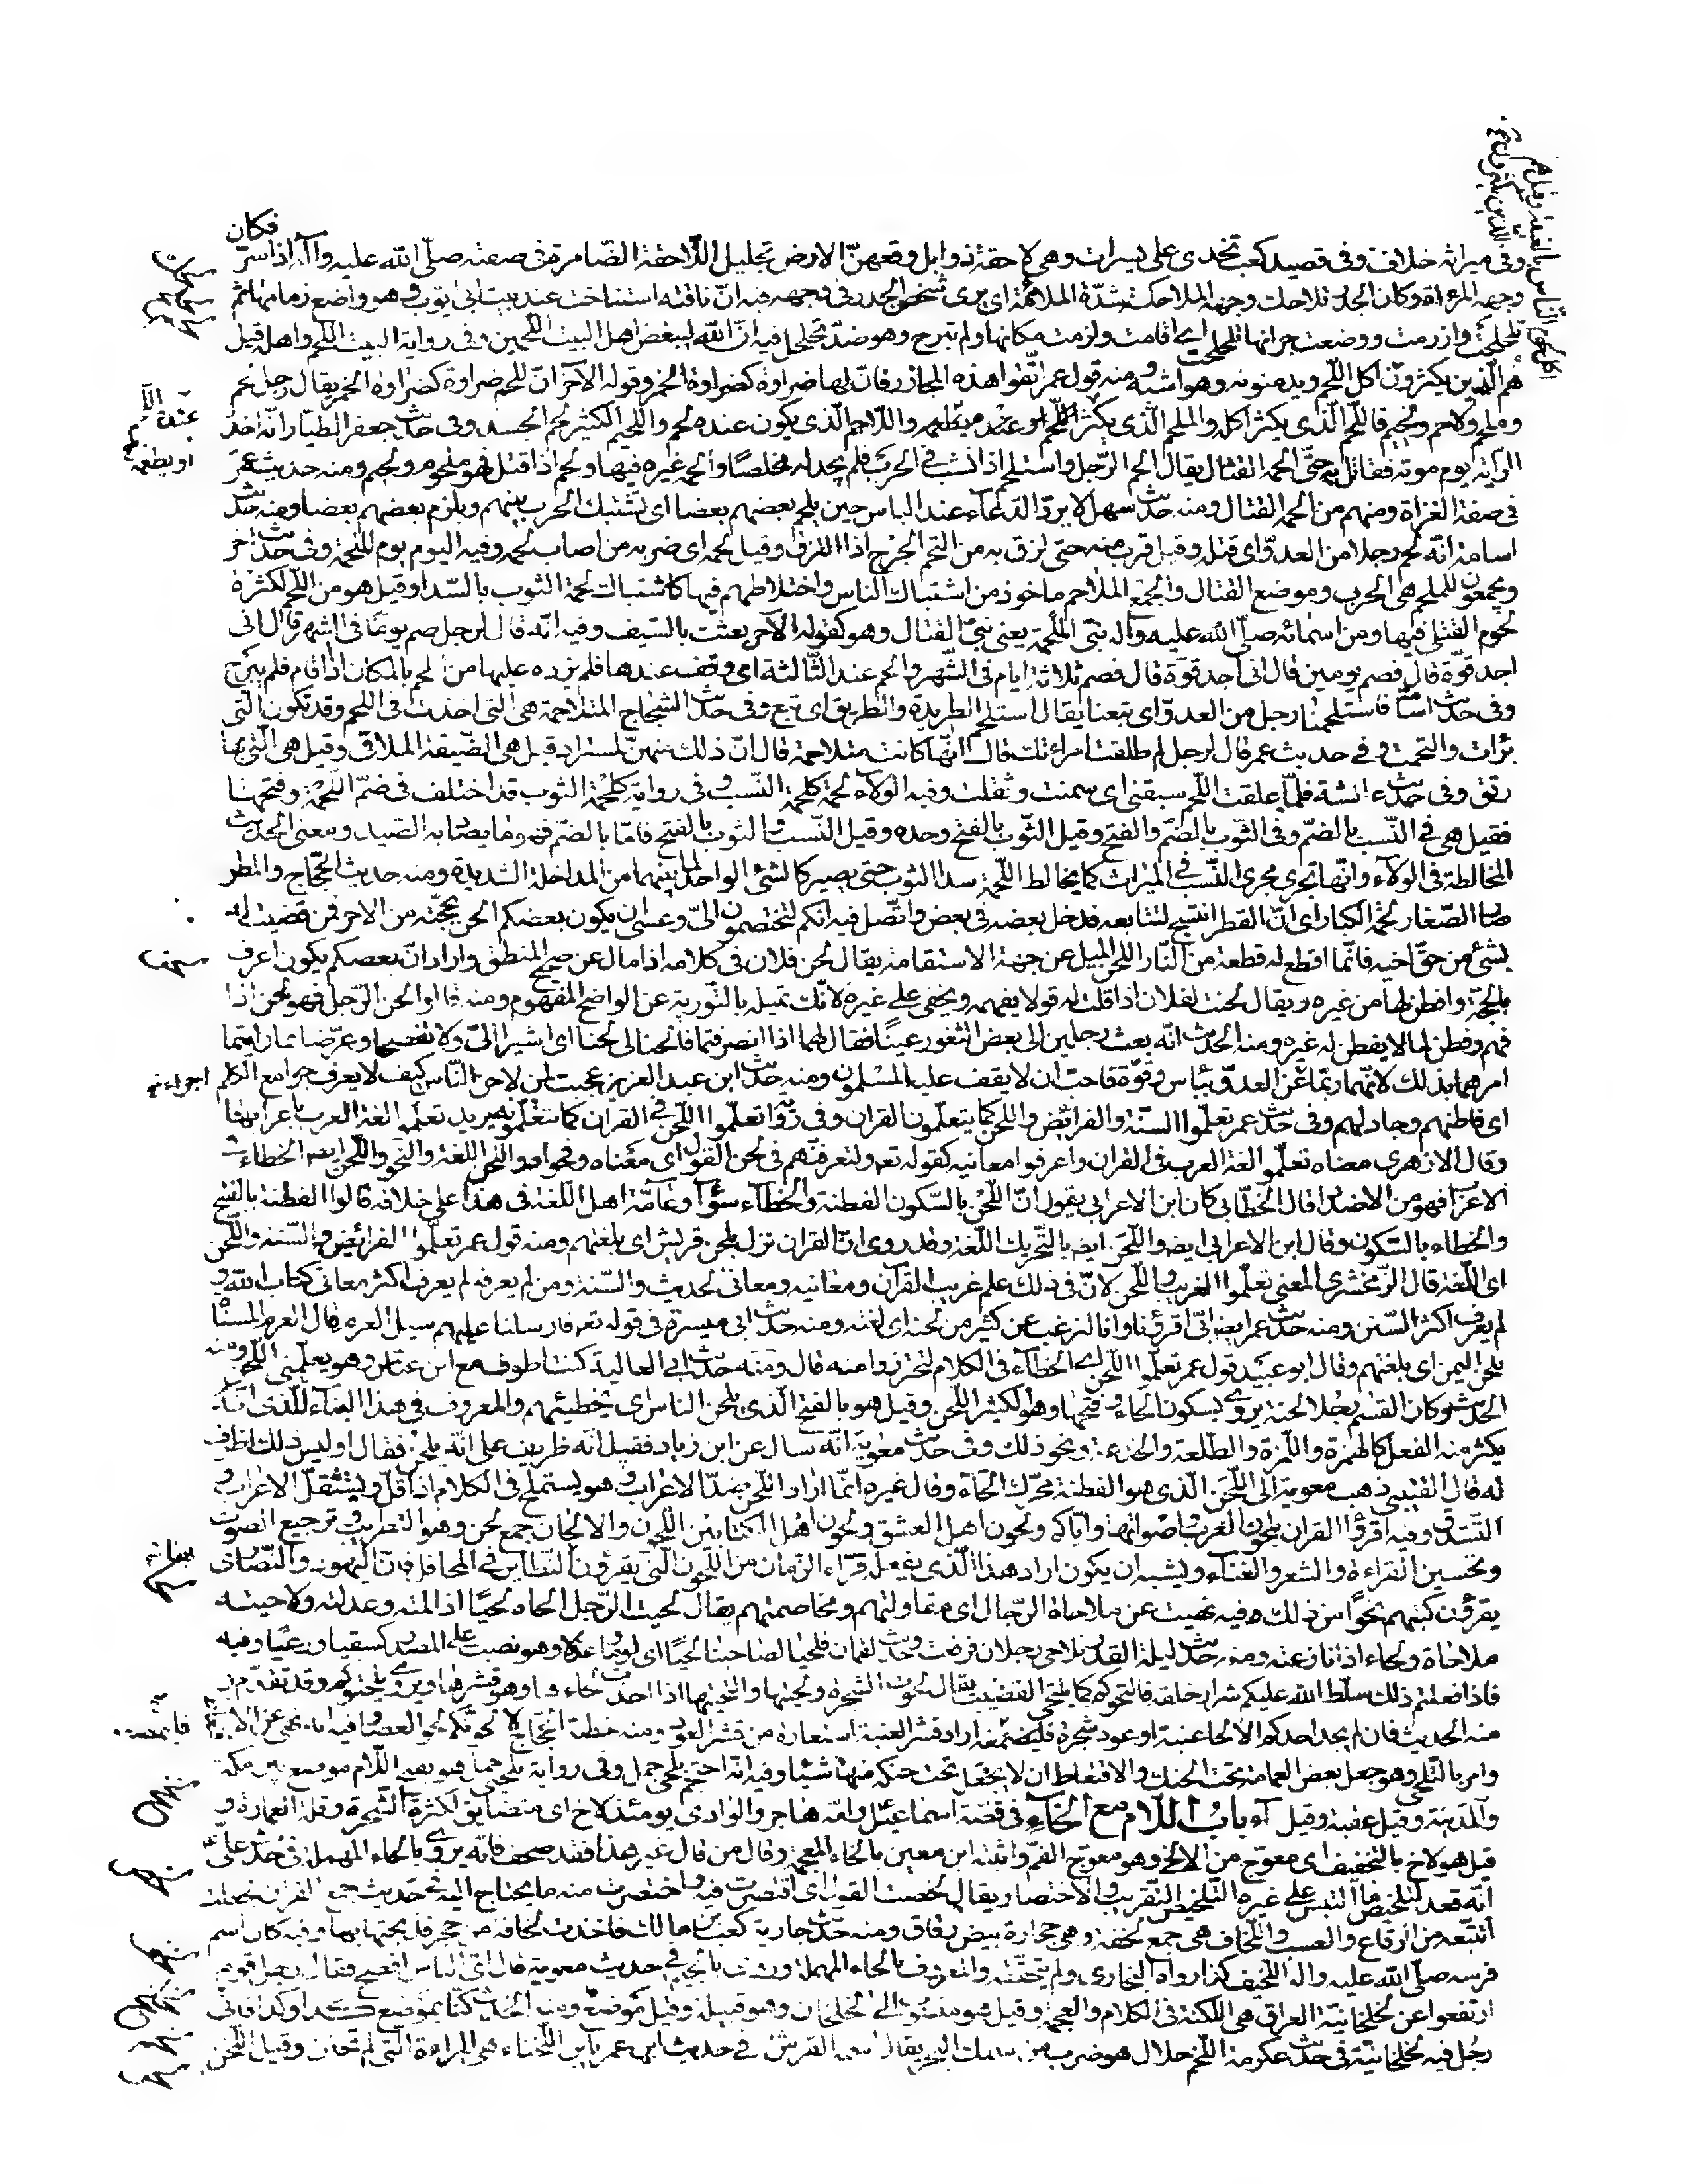 فكان
وفى ميراثه خلاف وفى قصيد كعب تخدى على يسرات وهى لاحقة ذوابل وقعهن الارض تحليل اللاحقة الضامرة فى صفته صلى الله عليه وآله اذا سر
وجهه المرءاة وكان الجدر تلاحك وجهه الملاحكة شدة الملائمة اى يرى شخص الجدر فى وجهه فيه ان ناقته استناخت عند بيت ابى ايوب وهو واضع زمامها ثم
تلحلحت وارزمت ووضعت جرانها تلحلحت اى اقامت ولزمت مكانها ولم تبرح وهو ضد تحلحل فيه ان الله ليبغض اهل البيت اللحمين وفى رواية البيت اللحم واهله قيل
هم الذين يكثرون اكل اللحم ويدمنونه وهو اشبه ومنه قول عمر اتقوا هذه المجازر فان لها ضراوة كضراوة الخمر وقوله الآخر ان للحم ضراوة كضراوة الخمر يقال رجل لحم
وملحم ولاحم ولحيم فاللحم الذى يكثر اكله والملحم الذى يكثر اللحم عنده او يطعمه واللاحم الذى يكون عنده لحم واللحيم الكثير لحم الجسد وفى حديث جعفر الطيار انه اخذ
الراية يوم موتة فقاتل بها حتى الحمه القتال يقال الحم الرجل واستلحم اذا نشب فى الحرب فلم يجد له مخلصا والحمه غيره فيها ولحم اذا قتل فهو ملحوم ولحيم ومنه حديث عمر
فى صفة الغزاة ومنهم من الحمه القتال ومنه حديث سهل لا يرد الدعاء عند الباس حين يلحم بعضهم بعضا اى تشتبك الحرب بينهم ويلزم بعضهم بعضا ومنه حديث
اسامة انه لحم رجلا من العدو اى قتله وقيل قرب منه حتى لزق به من التحم الجرح اذا التزق وقيل لحمه اى ضربه من اصاب لحمه وفيه اليوم يوم الملحمة وفى حديث آخر
ويجمعون للملحمة هى الحرب وموضع القتال والجمع الملاحم ماخوذ من اشتباك الناس واختلاطهم فيها كاشتباك لحمة الثوب بالسدا وقيل هو من اللحم لكثرة
لحوم القتلى فيها ومن اسمائه صلى الله عليه وآله نبى الملحمة يعنى نبى القتال وهو كقوله الآخر بعثت بالسيف وفيه انه قال لرجل صم يوما فى الشهر قال انى
اجد قوة قال فصم يومين قال انى اجد قوة قال فصم ثلاثة ايام فى الشهر والحم عند الثالثة اى وقف عندها فلم يزده عليها من لحم بالمكان اذا اقام فلم يبرح
وفى حديث اسامة فاستلحمنا رجل من العدو اى تبعنا يقال استلحم الطريدة والطريق اى تبع وفى حديث الشجاج المتلاحمة هى التى اخذت فى اللحم وقد تكون التى
برات والتحمت وفى حديث عمر قال لرجل لم طلقت امراتك قال انها كانت متلاحمة قال ان ذلك منهن لمستراد قيل هى الضيقة الملاقى وقيل هى التى بها
رتق وفى حديث عائشة فلما علقت اللحم سبقنى اى سمنت وثقلت وفيه الولاء لحمة كلحمة النسب وفى رواية كلحمة الثوب قد اختلف فى ضم اللحمة وفتحها
فقيل هى فى النسب بالضم وفى الثوب بالضم والفتح وقيل الثوب بالفتح وحده وقيل النسب والثوب بالفتح فاما بالضم فهو ما يصاد به الصيد ومعنى الحديث
المخالطة فى الولاء وانها تجرى مجرى النسب فى الميراث كما يخالط اللحمة سدا الثوب حتى يصير كالشئ الواحد لما بينهما من المداخلة الشديدة ومنه حديث الحجاج والمطر
صار الصغار لحمة الكبار اى ان القطر انتسج لتتابعه فدخل بعضه فى بعض واتصل فيه انكم لتختصمون الى وعسى ان يكون بعضكم الحن بحجته من الاخر فمن قضيت له
بشئ من حق اخيه فانما اقطع له قطعة من النار اللحن الميل عن جهة الاستقامة يقال لحن فلان فى كلامه اذا مال عن صحيح المنطق واراد ان بعضكم يكون اعرف
بالحجة وافطن لها من غيره ويقال لحنت لفلان اذا قلت له قولا يفهمه ويخفى على غيره لانك تميله بالتورية عن الواضح المفهوم ومنه قالوا لحن الرجل فهو لحن اذا
فهم وفطن لما لا يفطن له غيره ومنه الحديث انه بعث رجلين الى بعض الثغور عينا فقال لهما اذا انصرفتما فالحنا لى لحنا اى اشيرا الى ولا تفصحا وعرضا بما رايتما
امرهما بذلك لانهما ربما اخبرا عن العدو بباس وقوة فاحب ان لا يقف عليه المسلمون ومنه حديث ابن عبد العزيز عجبت لمن لاحن الناس كيف لا يعرف جوامع الكلم
اى فاطنهم وجادلهم وفى حديث عمر تعلموا السنة والفرائض واللحن كما يتعلمون القران وفى رواية تعلموا اللحن فى القران كما تتعلمونه يريد تعلموا لغة العرب باعرابها
وقال الازهرى معناه تعلموا لغة العرب فى القران واعرفوا معانيه كقوله تعه ولتعرفنهم فى لحن القول اى معناه وفحواه واللحن اللغة والنحو واللحن ايضه الخطاء
الاعراب فهو من الاضداد قال الخطابى كان ابن الاعرابى يقول ان اللحن بالسكون الفطنة والخطاء سواء وعامة اهل اللغة فى هذا على خلافه قالوا الفطنة بالفتح
والخطاء بالسكون وقال ابن الاعرابى ايضه واللحن ايضه بالتحريك اللغة وقد روى ان القران نزل بلحن قريش اى بلغتهم ومنه قول عمر تعلموا الفرائض والسنة واللحن
اى اللغة قال الزمخشرى المعنى تعلموا الغريب واللحن لان فى ذلك علم غريب القران ومعانيه ومعانى الحديث والسنة ومن لم يعرفه لم يعرف اكثر معانى كتاب الله و
لم يعرف اكثر السنن ومنه حديث عمر ايضه ابى اقرؤنا وانا لنرغب عن كثير من لحنه اى لغته ومنه حديث ابى ميسرة فى قوله تعه فارسلنا عليهم سيل العرم قال العرم المسناة
بلحن اليمن اى بلغتهم وقال ابو عبيد قول عمر تعلموا اللحن اى الخطاء فى الكلام لتحترزوا منه قال ومنه حديث ابى العالية كنت اطوف مع ابن عباس وهو يعلمنى اللحن ومنه
الحديث وكان القسم رجلا لحنة يروى بسكون الحاء وفتحها وهو الكثير اللحن وقيل هو بالفتح الذى يلحن الناس اى يخطئهم والمعروف فى هذا البناء للذى انه
يكثر منه الفعل كالهمزة واللمزة والطلعة والخدعة ونحو ذلك وفى حديث معوية انه سال عن ابن زياد فقيل انه ظريف على انه يلحن فقال اوليس ذلك اظرف
له قال القتيبى ذهب معوية الى اللحن الذى هو الفطنة محرك الحاء وقال غيره انما اراد اللحن ضد الاعراب وهو يستملح فى الكلام اذا قل ويستثقل الاعراب و
التشدق وفيه اقرؤا القران بلحون العرب واصواتها واياكم ولحون اهل العشق ولحون اهل الكتابين اللحون والالحان جمع لحن وهو التطريب وترجيع الصوت
وتحسين القراءة والشعر والغناء ويشبه ان يكون اراد هذا الذى يفعله قراء الزمان من اللحون التى يقرؤن النظاير فى المحافل فان اليهود والنصارى
يقرؤن كتبهم نحوا من ذلك وفيه نهيت عن ملاحاة الرجال اى مقاولتهم ومخاصمتهم يقال لحيت الرجل الحاه لحيا اذا لمته وعذلته ولاحيته
ملاحاة ولحاء اذا نازعته ومنه حديث ليلة القدر تلاحى رجلان فرفعت وحديث لقمان فلحيا لصاحبنا لحيا اى لوما وعذلا وهو نصب على المصدر كسقيا ورعيا وفيه
فاذا فعلتم ذلك سلط الله عليكم شرار خلقه فالتحوكم كما يلتحى القضيب يقال لحوت الشجرة ولحيتها والتحيتها اذا اخذت لحاءها وهو قشرها ويروى يلحتوكم وقد تقدم
منه الحديث فان لم يجد احدكم الا لحا عنبة او عود شجرة فليمضغه اراد قشر العنبة استعارة من قشر العود ومنه خطبة الحجاج لالحونكم لحو العصا وفيه انه نهى عن الاقتعاط
وامر بالتلحى وهو جعل بعض العمامة تحت الحنك والاقتعاط ان لا يجعل تحت حنكه منها شيئا وفيه انه احتجم بلحى جمل وفى رواية بلحيى جمل هو بفتح اللام موضع بين مكة
والمدينة وقيل عقبة وقيل ماء باب اللام مع الخاء فى قصة اسماعيل وامه هاجر والوادى يومئذ لاخ اى متضايق لكثرة الشجرة وقلة العمارة و
قيل هو لاخ بالتخفيف اى معوج من الالخى وهو معوج الفم واثبته ابن معين بالخاء المعجمة وقال من قال غير هذا فقد صحف فانه يروى بالحاء المهملة فى حديث على
انه قعد لتلخيص ما التبس على غيره التلخيص التقريب والاختصار يقال لخصت القول اى اقتصرت فيه واختصرت منه ما يحتاج اليه فى حديث جمع القران فجعلت
اتتبعه من الرقاع والعسب واللخاف هى جمع لخفة وهى حجارة بيض رقاق ومنه حديث جارية كعب بن مالك فاخذت لخافة من حجر فذبحتها بها وفيه كان اسم
فرسه صلى الله عليه واله اللخيف كذا رواه البخارى ولم يتحققه والمعروف بالحاء المهملة وروى بالجيم فى حديث معوية قال اى الناس افصح فقال رجل قوم
ارتفعوا عن لخلخانية العراق هى اللكنة فى الكلام والعجمة وقيل هو منسوب الى لخلخان وهو قبيلة وقيل موضع ومنه الحديث كنا بموضع كذا وكذا فاتى
رجل فيه لخلخانية فى حديث عكرمة اللخم حلال هو ضرب من سمك البحر يقال اسمه القرش فى حديث ابن عمر يابن اللخناء هى المراءة التى لم تختن وقيل اللخن